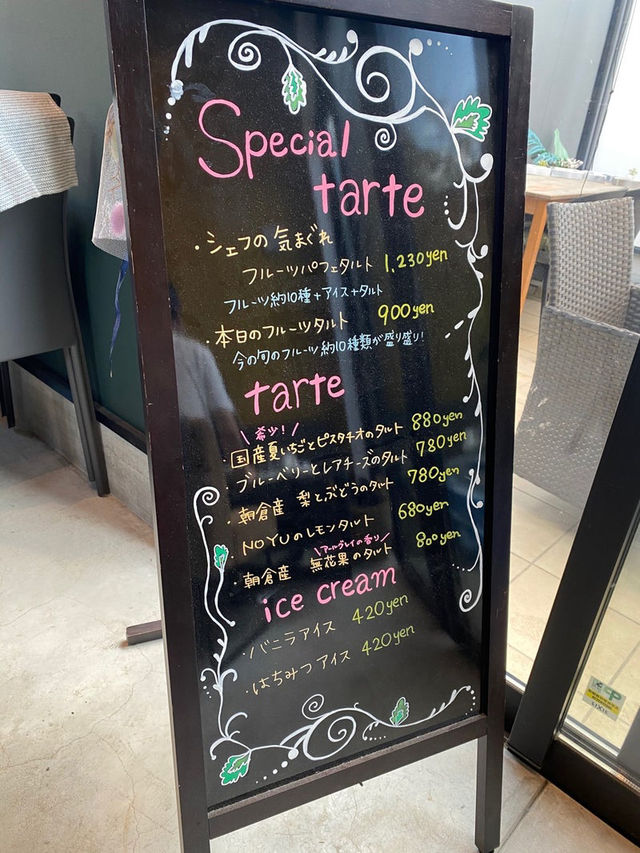 Special
tarte
・シェフの気まぐれ
フルーツパフェタルト 1,230yen
フルーツ約10種+アイス+タルト
・本日のフルーツタルト 900yen
今の旬のフルーツ約10種類が盛り盛り!
tarte
\希少!/
・国産夏いちごとピスタチオのタルト 880yen
・ブルーベリーとレアチーズのタルト 780yen
・朝倉産 梨とぶどうのタルト 780yen
・NOYUのレモンタルト 680yen
\アールグレイの香り/
・朝倉産 無花果のタルト 800yen
ice cream
・バニラアイス 420yen
・はちみつアイス 420yen
LIXIL